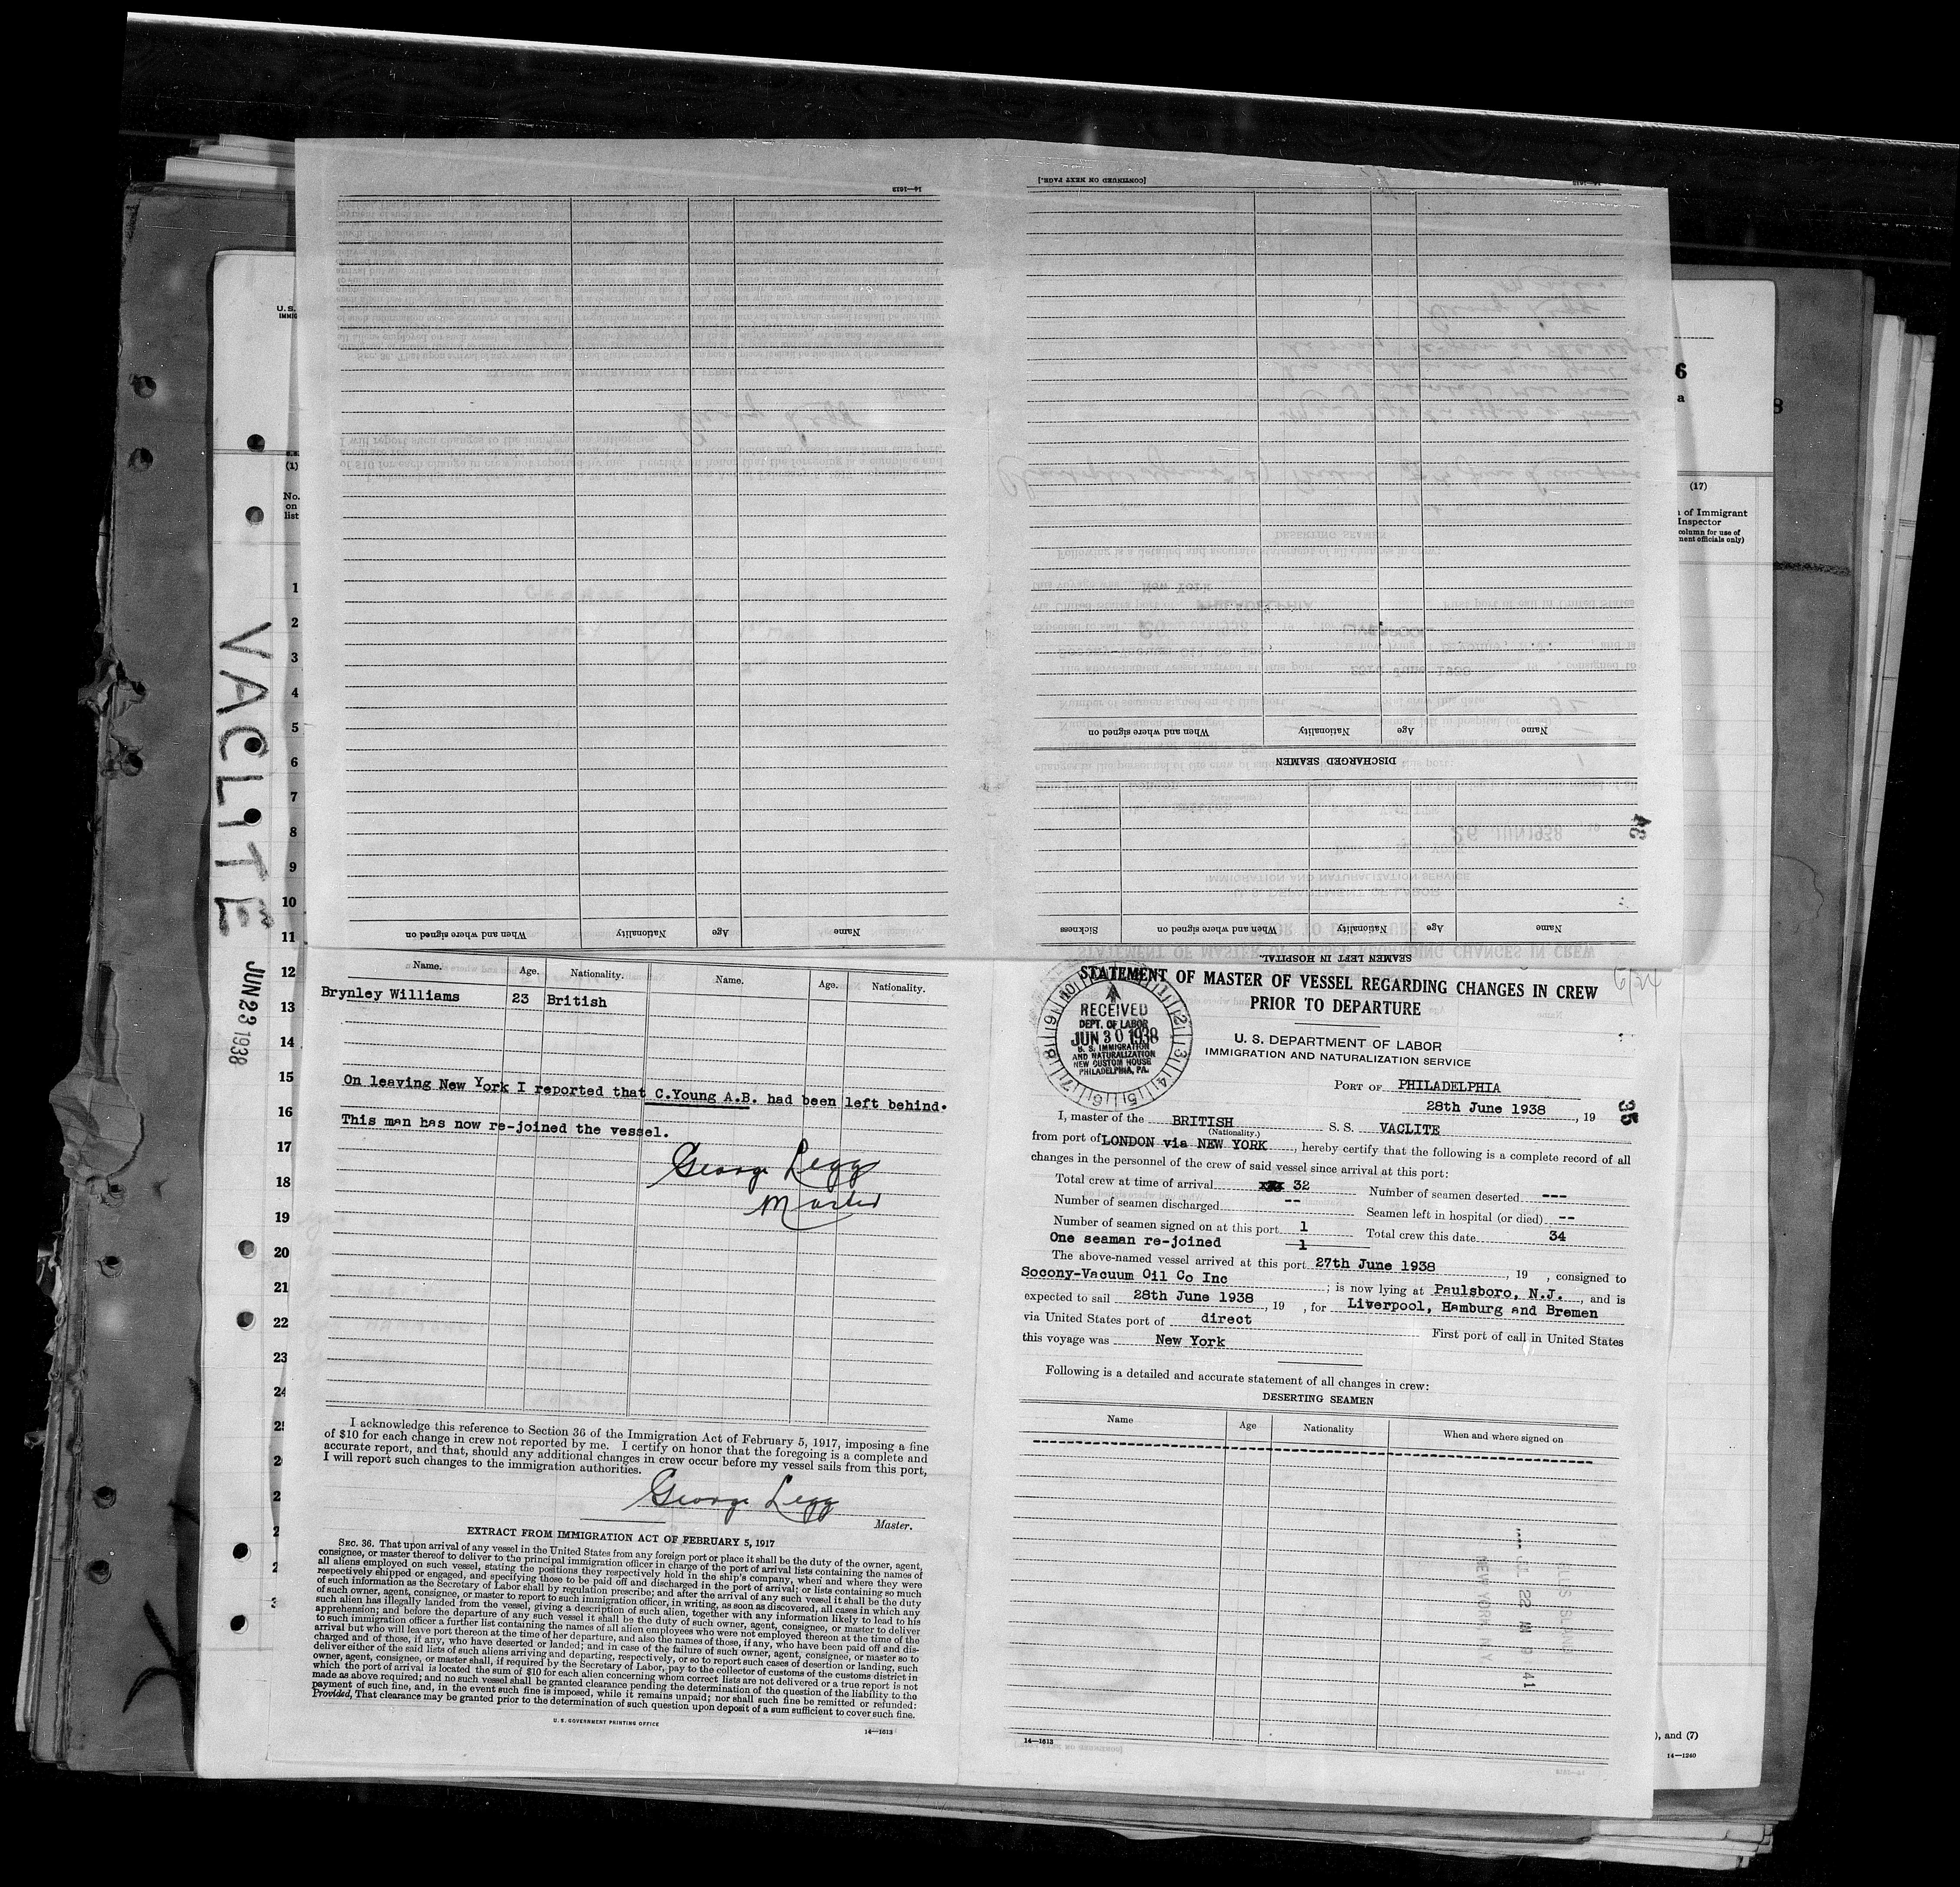 VACLITE
JUN 23 1938
U. S.
(1)
No.
on
list
1
2
3
4
5
6
7
8
9
10
11
12
13
14
15
16
17
18
19
20
21
22
23
24
6
a
8
(17)
of Immigrant
Inspector
column for use of
ment officials only)
), and (7)
14—1240
14—1613
When and where signed on
Nationality
Age
Name
[CONTINUED ON NEXT PAGE.]
When and where signed on
Nationality
Age
Name
DISCHARGED SEAMEN
Sickness
When and where signed on
Nationality
Age
Name
SEAMEN LEFT IN HOSPITAL.
Name. Age. Nationality. Name. Age. Nationality.
Brynley Williams 23 British
On leaving New York I reported that C.Young A.B. had been left behind.
This man has now re-joined the vessel.
George Legg
Master
I acknowledge this reference to Section 36 of the Immigration Act of February 5, 1917, imposing a fine
of $10 for each change in crew not reported by me. I certify on honor that the foregoing is a complete and
accurate report, and that, should any additional changes in crew occur before my vessel sails from this port,
I will report such changes to the immigration authorities.
George Legg
Master.
EXTRACT FROM IMMIGRATION ACT OF FEBRUARY 5, 1917
SEC. 36. That upon arrival of any vessel in the United States from any foreign port or place it shall be the duty of the owner, agent,
consignee, or master thereof to deliver to the principal immigration officer in charge of the port of arrival lists containing the names of
all aliens employed on such vessel, stating the positions they respectively hold in the ship's company, when and where they were
respectively shipped or engaged, and specifying those to be paid off and discharged in the port of arrival; or lists containing so much
of such information as the Secretary of Labor shall by regulation prescribe; and after the arrival of any such vessel it shall be the duty
of such owner, agent, consignee, or master to report to such immigration officer, in writing, as soon as discovered, all cases in which any
such alien has illegally landed from the vessel, giving a description of such alien, together with any information likely to lead to his
apprehension; and before the departure of any such vessel it shall be the duty of such owner, agent, consignee, or master to deliver
to such immigration officer a further list containing the names of all alien employees who were not employed thereon at the time of the
arrival but who will leave port thereon at the time of her departure, and also the names of those, if any, who have been paid off and dis-
charged and of those, if any, who have deserted or landed; and in case of the failure of such owner, agent, consignee, or master so to
deliver either of the said lists of such aliens arriving and departing, respectively, or so to report such cases of desertion or landing, such
owner, agent, consignee, or master shall, if required by the Secretary of Labor, pay to the collector of customs of the customs district in
which the port of arrival is located the sum of $10 for each alien concerning whom correct lists are not delivered or a true report is not
made as above required; and no such vessel shall be granted clearance pending the determination of the question of the liability to the
payment of such fine, and, in the event such fine is imposed, while it remains unpaid; nor shall such fine be remitted or refunded:
Provided, That clearance may be granted prior to the determination of such question upon deposit of a sum sufficient to cover such fine.
U. S. GOVERNMENT PRINTING OFFICE 14—1613
STATEMENT OF MASTER OF VESSEL REGARDING CHANGES IN CREW
PRIOR TO DEPARTURE
RECEIVED
DEPT. OF LABOR
JUN 30 1938
U. S. IMMIGRATION
AND NATURALIZATION
NEW CUSTOM HOUSE
PHILADELPHIA, PA.
U. S. DEPARTMENT OF LABOR
IMMIGRATION AND NATURALIZATION SERVICE
PORT OF PHILADELPHIA
28th June 1938, 19
35
I, master of the BRITISH S. S. VACLITE
(Nationality.)
from port of LONDON via NEW YORK, hereby certify that the following is a complete record of all
changes in the personnel of the crew of said vessel since arrival at this port:
Total crew at time of arrival xxx 32 Number of seamen deserted ---
Number of seamen discharged -- Seamen left in hospital (or died) --
Number of seamen signed on at this port 1 Total crew this date 34
One seaman re-joined 1
The above-named vessel arrived at this port 27th June 1938, 19 , consigned to
Socony-Vacuum Oil Co Inc ; is now lying at Paulsboro, N.J., and is
expected to sail 28th June 1938, 19 , for Liverpool, Hamburg and Bremen
via United States port of direct First port of call in United States
this voyage was New York
Following is a detailed and accurate statement of all changes in crew:
DESERTING SEAMEN
Name Age Nationality When and where signed on
14—1613